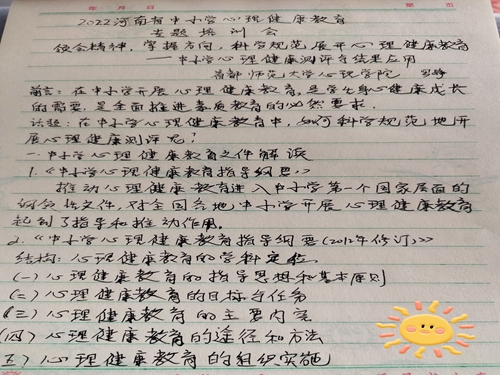 年 月 日 第 页
2022河南省中小学心理健康教育
专题培训会
领会精神，掌握方向，科学规范展开心理健康教育
——中小学心理健康测评与结果应用
首都师范大学心理学院
前言：在中小学开展心理健康教育，是学生身心健康成长
的需要，是全面推进素质教育的必然要求。
话题：在中小学心理健康教育中，如何科学规范地开
展心理健康测评呢？
一.中小学心理健康教育文件解读
1.《中小学心理健康教育指导纲要》
推动心理健康教育进入中小学第一个国家层面的
纲领性文件，对全国各地中小学开展心理健康教育
起到了指导和推动作用。
2.《中小学心理健康教育指导纲要（2012年修订）》
结构：心理健康教育的学科定位
(一)心理健康教育的指导思想和基本原则
(二)心理健康教育的目标与任务
(三)心理健康教育的主要内容
(四)心理健康教育的途径和方法
(五)心理健康教育的组织实施